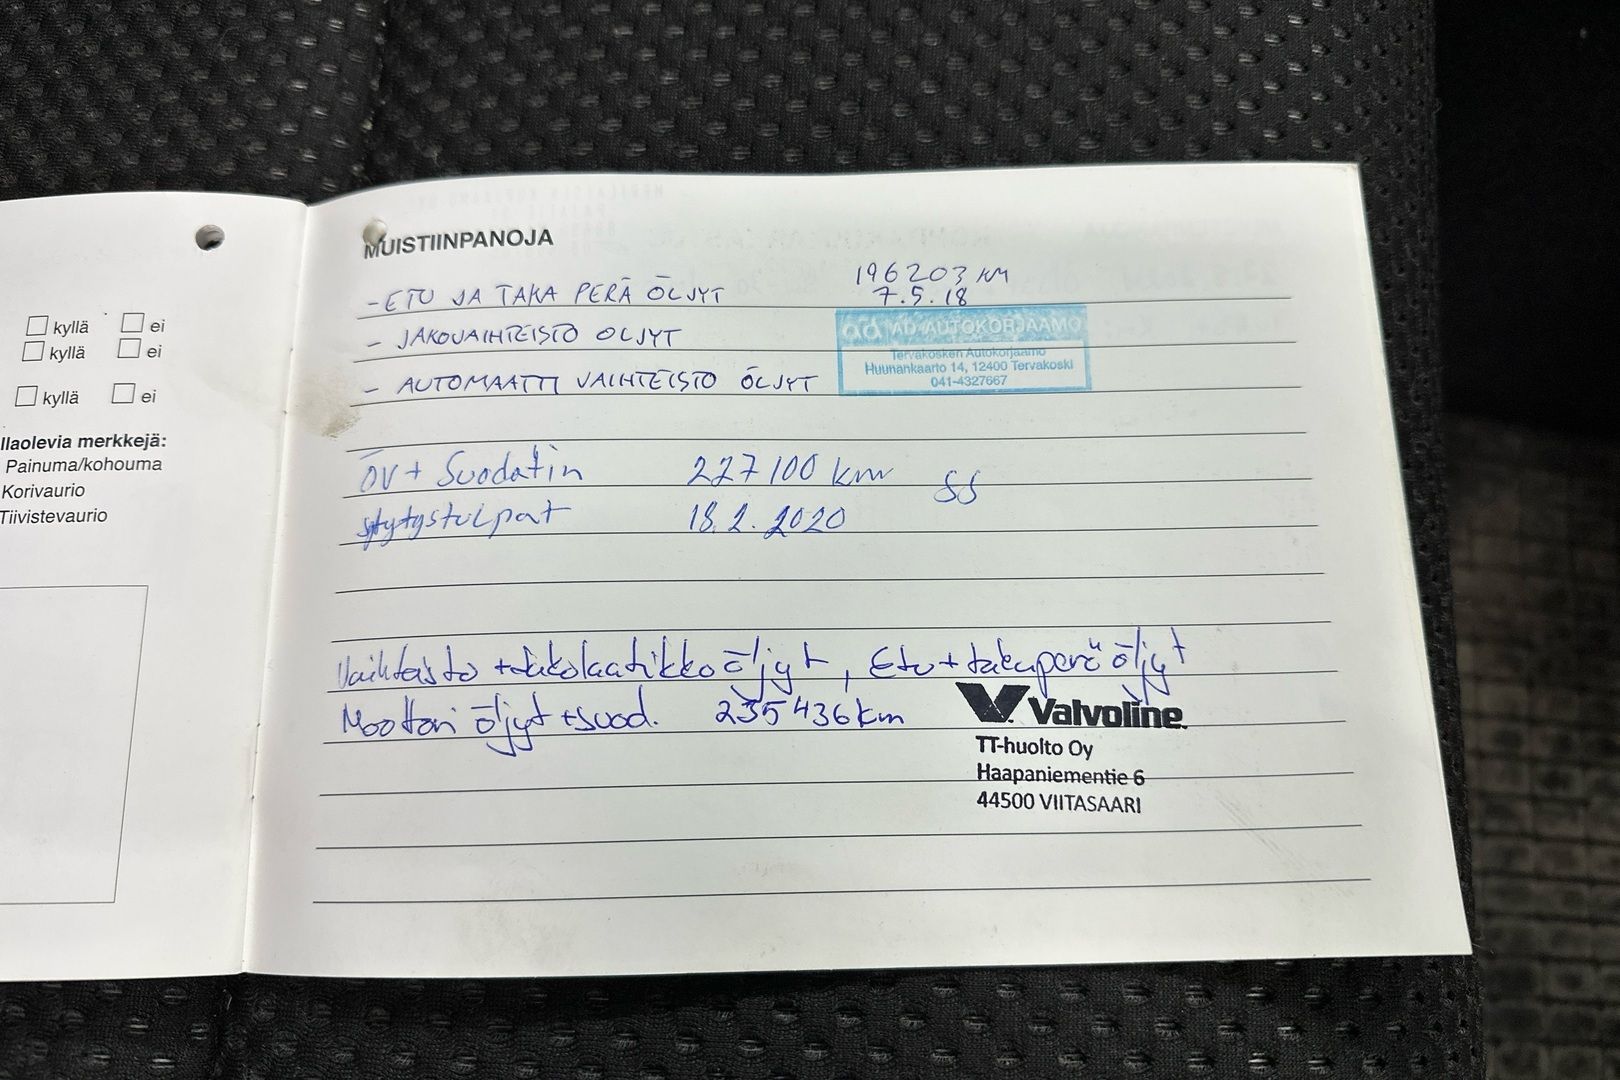 kyllä ei
kyllä ei
kyllä ei
llaolevia merkkejä:
Painuma/kohouma
Korivaurio
Tiivistevaurio
MUISTIINPANOJA
- ETU JA TAKA PERÄ ÖLJYT 196203 KM
7.5.18
- JAKOVAIHTEISTO ÖLJYT
- AUTOMAATTI VAIHTEISTO ÖLJYT
AD AUTOKORJAAMO
Tervakosken Autokorjaamo
Huunankaarto 14, 12400 Tervakoski
041-4327667
ÖV + Suodatin 227100 km SS
sytytystulpat 18.2.2020
Vaihteisto + jakolaatikko öljyt, Etu + takaperä öljyt
Moottori öljyt + suod. 235436 km
Valvoline
TT-huolto Oy
Haapaniementie 6
44500 VIITASAARI